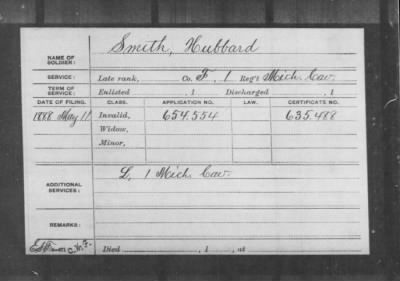 Smith, Hubbard
NAME OF SOLDIER:
SERVICE: Late rank, Co. F, 1 Reg't Mich. Cav.
TERM OF SERVICE: Enlisted , 1 Discharged , 1
DATE OF FILING. CLASS. APPLICATION NO. LAW. CERTIFICATE NO.
1888 May 11 Invalid, 654.554 635.488
Widow,
Minor,
ADDITIONAL SERVICES: L, 1 Mich. Cav.
REMARKS:
Died , 1 , at